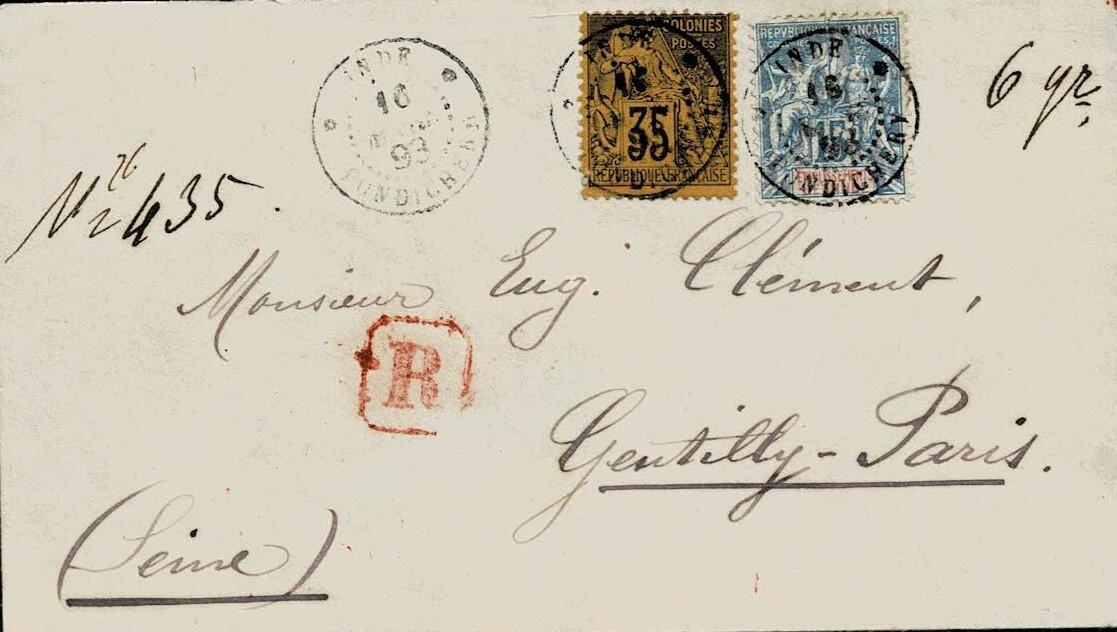 INDE
16
93
PONDICHERY
COLONIES
POSTES
35
REPUBLIQUE FRANÇAISE
INDE
16
REPUBLIQUE FRANÇAISE
POSTES
INDE
16
PONDICHERY
15
6 gr.
435
Monsieur Eug. Clément,
R
Gentilly - Paris.
(Seine)